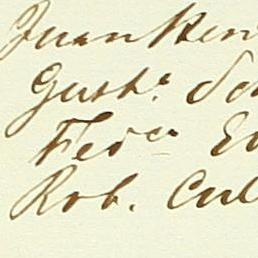 Juan Hen
Gustº. Sch
Fedco E
Rob. Cul